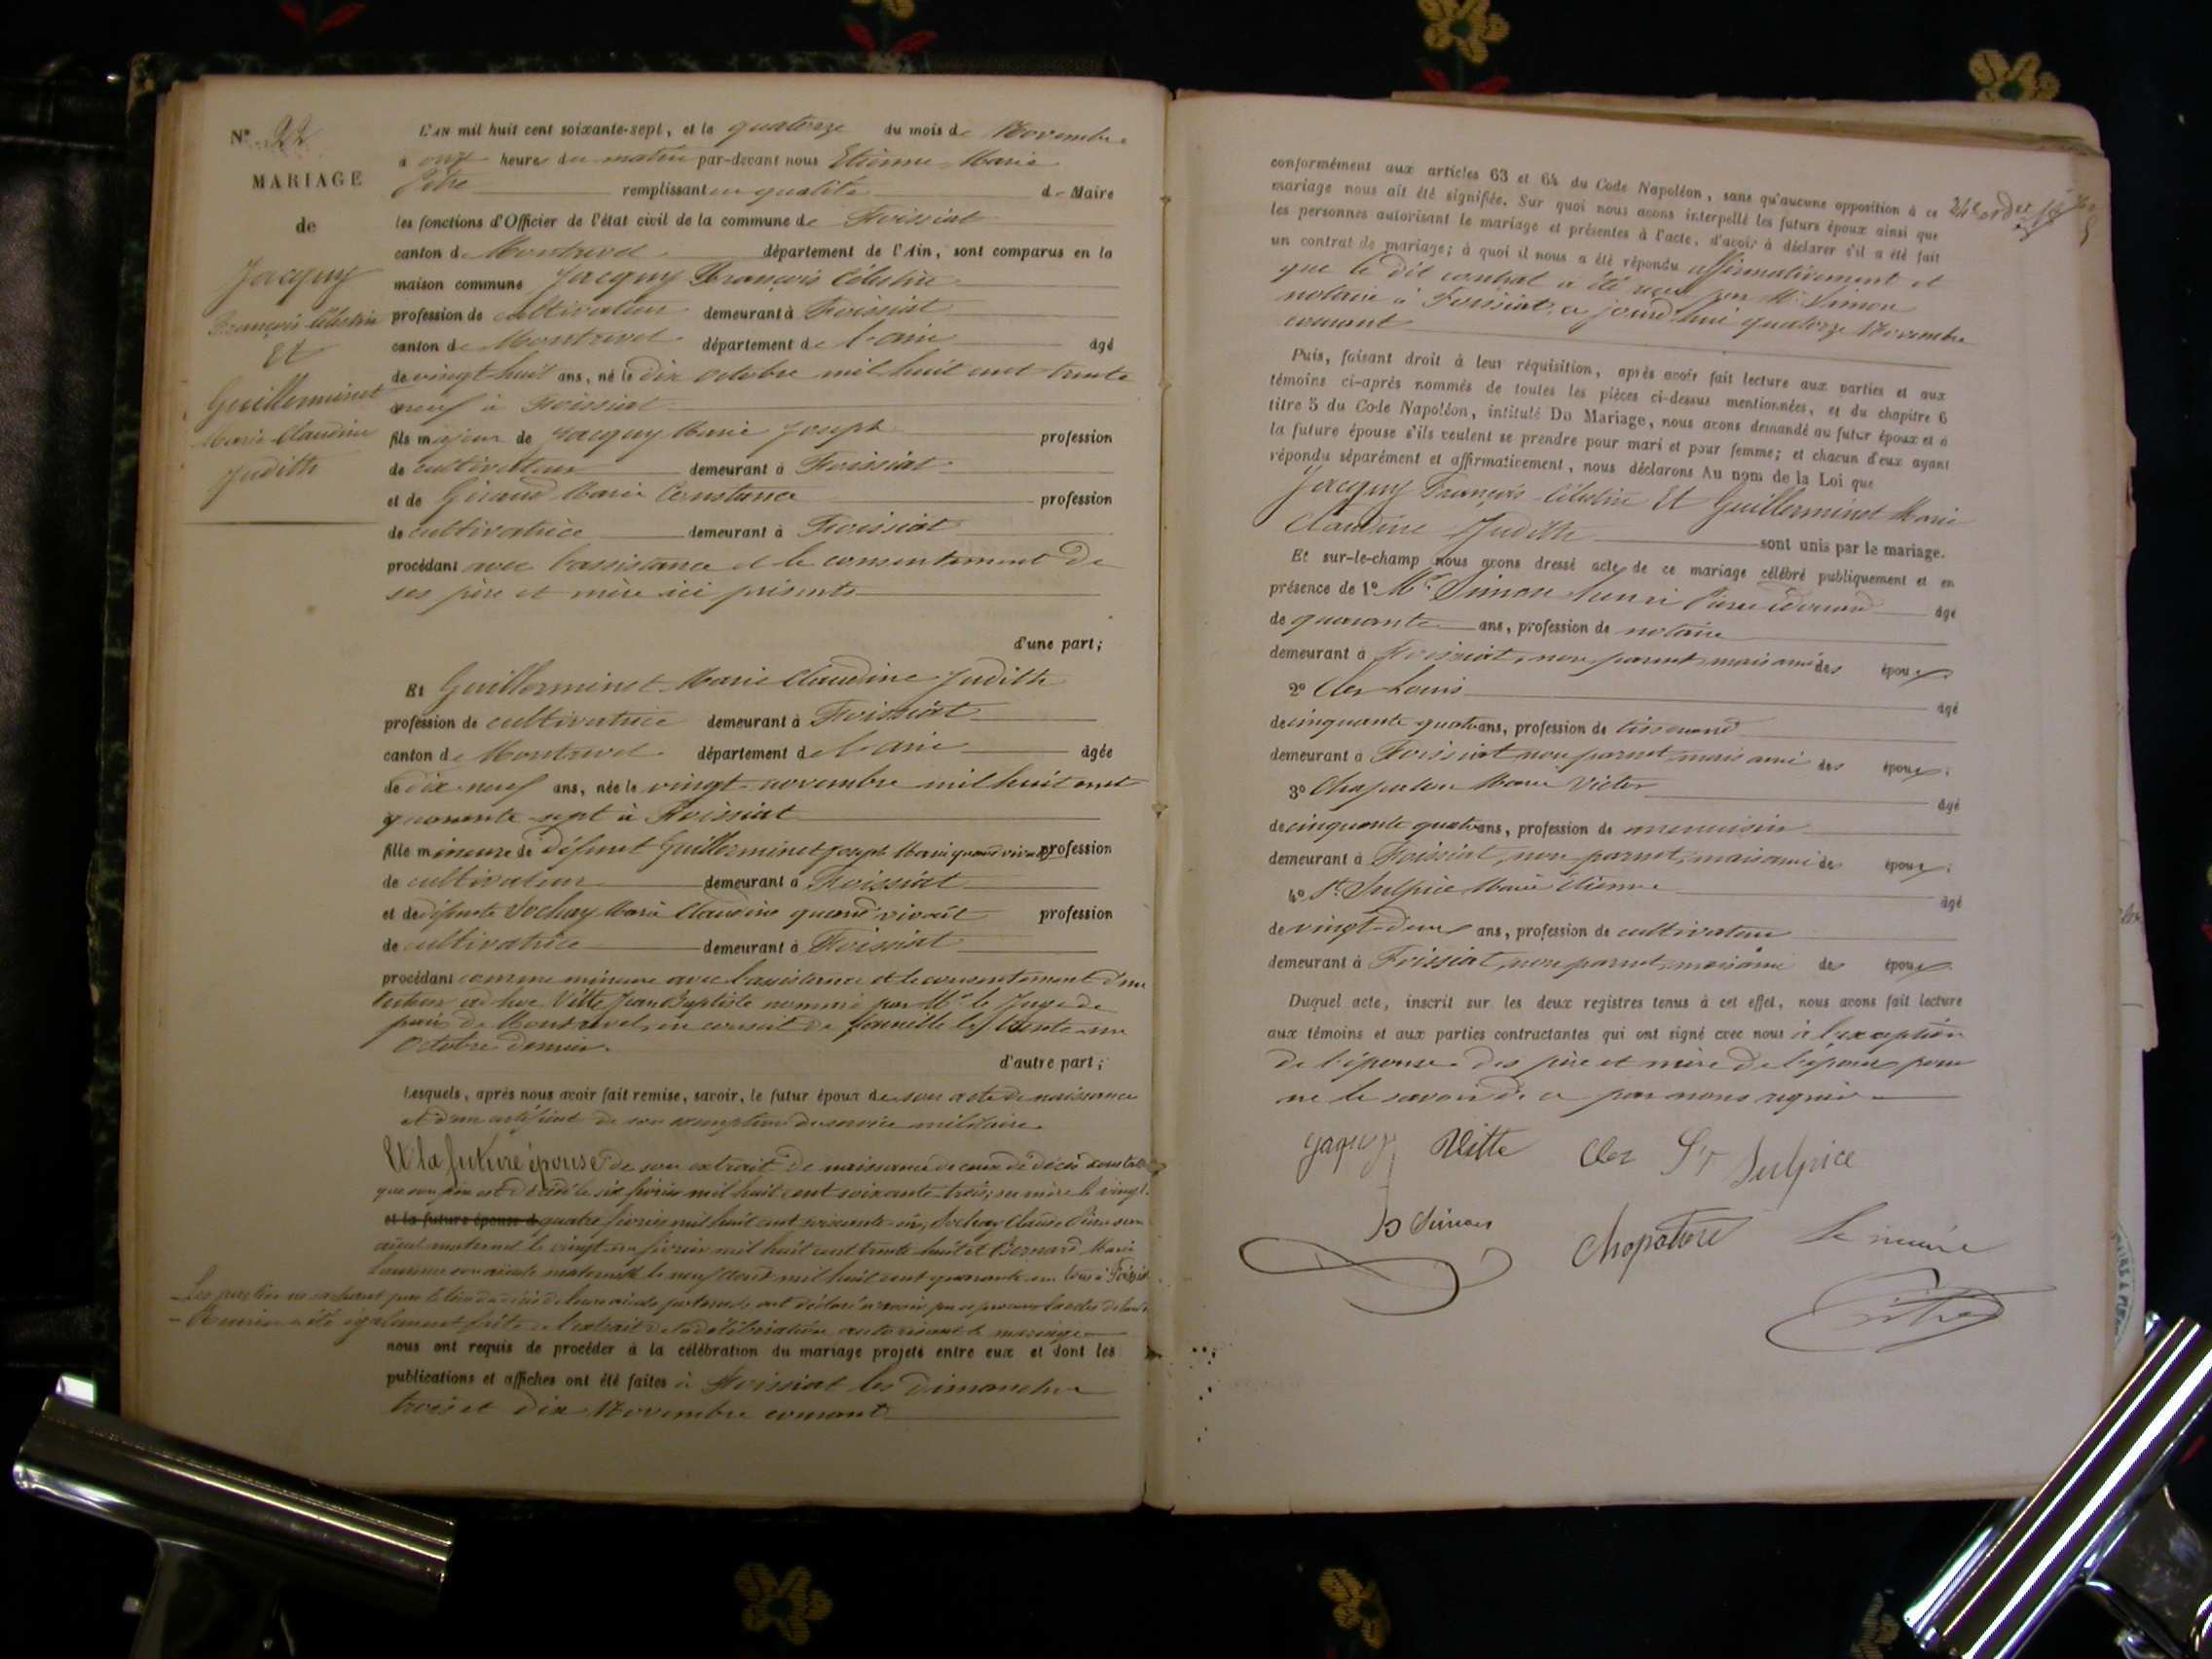 N° 22
MARIAGE
de
Jacquy
François Célestin
Et
Guillerminet
Marie Claudine
Judith
L'AN mil huit cent soixante-sept, et le quatorze du mois de Novembre
à onze heures du matin par-devant nous Etienne Marie
Pitre remplissant en qualité de Maire
les fonctions d'Officier de l'état civil de la commune de Foissiat
canton de Montrevel département de l'Ain, sont comparus en la
maison commune Jacquy François Célestin
profession de cultivateur demeurant à Foissiat
canton de Montrevel département de l'ain âgé
de vingt huit ans, né le dix octobre mil huit cent trente
neuf à Foissiat
fils majeur de Jacquy Marie Joseph profession
de cultivateur demeurant à Foissiat
et de Giraud Marie Constance profession
de cultivatrice demeurant à Foissiat
procédant avec l'assistance et le consentement de
ses père et mère ici présents
d'une part;
Et Guillerminet Marie Claudine Judith
profession de cultivatrice demeurant à Foissiat
canton de Montrevel département de l'ain âgée
de dix-neuf ans, née le vingt novembre mil huit cent
quarante sept à Foissiat
fille mineure de défunt Guillerminet Joseph Marie quand vivait profession
de cultivateur demeurant à Foissiat
et de défunte Sochay Marie Claudine quand vivait profession
de cultivatrice demeurant à Foissiat
procédant comme mineure avec l'assistance et le consentement d'un
tuteur ad hoc Vitte Jean Baptiste nommé par Mr le Juge de
paix de Montrevel, en conseil de famille le trente un
Octobre dernier.
d'autre part;
Lesquels, après nous avoir fait remise, savoir, le futur époux de son acte de naissance
et d'un certificat de son exemption du service militaire
Et la future épouse de son extrait de naissance de ceux de décès constatant
que son père est décédé le six février mil huit cent soixante trois; sa mère le vingt
et la future épouse d quatre février mil huit cent soixante six, Sochay Claude Pierre son
aïeul maternel le vingt un février mil huit cent trente huit et Bernard Marie
son aïeule maternelle le neuf août mil huit cent quarante un tous à Foissiat
Les parties ne sachant pas le lieu du décès de leurs aïeuls paternels ont déclaré n'avoir pu se procurer les actes de
Remise a été également faite de l'extrait de la délibération autorisant le mariage
nous ont requis de procéder à la célébration du mariage projeté entre eux et dont les
publications et affiches ont été faites à Foissiat les dimanches
trois et dix Novembre courant
conformément aux articles 63 et 64 du Code Napoléon, sans qu'aucune opposition à ce
mariage nous ait été signifiée. Sur quoi nous avons interpellé les futurs époux ainsi que
les personnes autorisant le mariage et présentes à l'acte, d'avoir à déclarer s'il a été fait
un contrat de mariage; à quoi il nous a été répondu affirmativement et
que le dit contrat a été reçu par Mr Simon
notaire à Foissiat, ce jourd'hui quatorze Novembre
courant
Puis, faisant droit à leur réquisition, après avoir fait lecture aux parties et aux
témoins ci-après nommés de toutes les pièces ci-dessus mentionnées, et du chapitre 6
titre 5 du Code Napoléon, intitulé Du Mariage, nous avons demandé au futur époux et à
la future épouse s'ils veulent se prendre pour mari et pour femme; et chacun d'eux ayant
répondu séparément et affirmativement, nous déclarons Au nom de la Loi que
Jacquy François Célestin Et Guillerminet Marie
Claudine Judith sont unis par le mariage.
Et sur-le-champ nous avons dressé acte de ce mariage célébré publiquement et en
présence de 1° Mr Simon Henri Pierre Edouard âgé
de quarante ans, profession de notaire
demeurant à Foissiat, non parent mais ami des époux
2° Cler Louis âgé
de cinquante quatre ans, profession de tisserand
demeurant à Foissiat non parent mais ami des époux;
3° Chapaton Marie Victor âgé
de cinquante quatre ans, profession de menuisier
demeurant à Foissiat, non parent, mais ami des époux;
4° St Sulpice Marie Etienne âgé
de vingt-deux ans, profession de cultivateur
demeurant à Foissiat, non parent, mais ami des époux
Duquel acte, inscrit sur les deux registres tenus à cet effet, nous avons fait lecture
aux témoins et aux parties contractantes qui ont signé avec nous à l'exception
de l'épouse des père et mère de l'époux pour
ne le savoir de ce par nous requis
Jaquy Vitte Cler St Sulpice
Simon Chapaton Le maire
Pitre